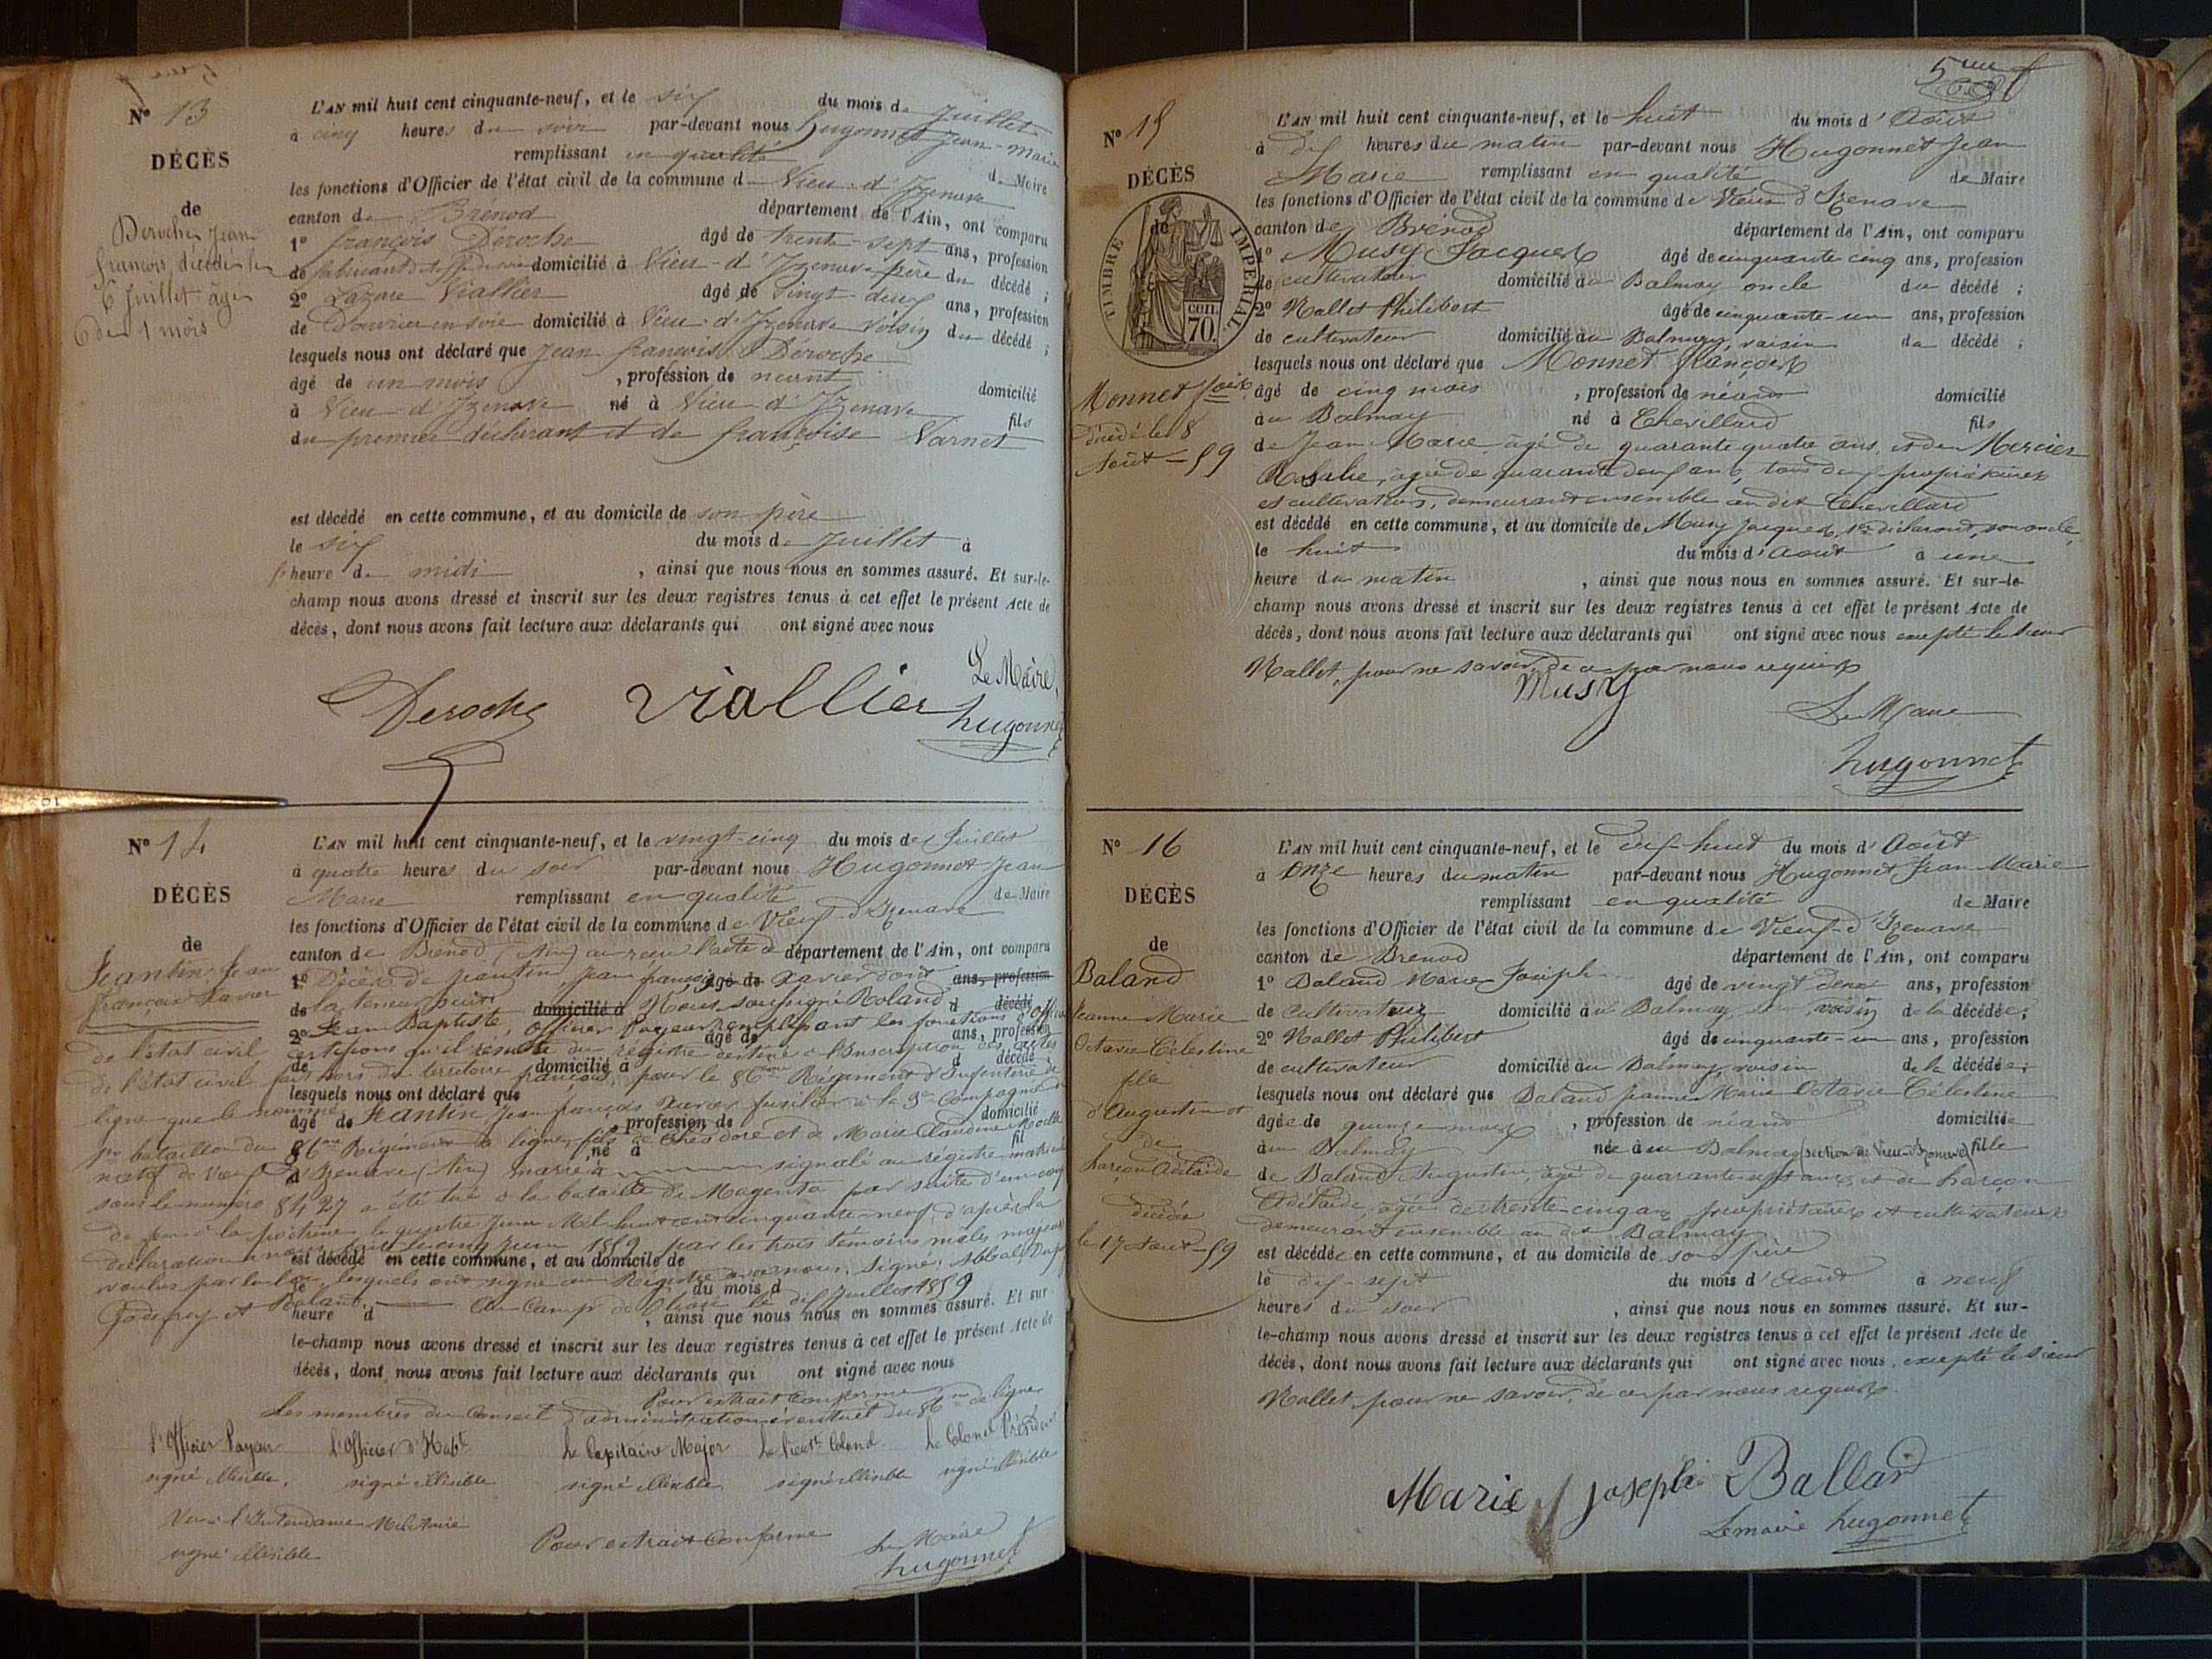 N° 13
DÉCÈS
de
Deroche Jean
francois, décédé le
6 Juillet âgé
de 1 mois
L'AN mil huit cent cinquante-neuf, et le six du mois de Juillet
à cinq heures du soir par-devant nous hugonnet Jean-Marie
remplissant en qualité de Maire
les fonctions d'Officier de l'état civil de la commune d Vieu-d'Izenave
canton de Brénod département de l'Ain, ont comparu
1° françois Déroche âgé de trente-sept ans, profession
de fabricant domicilié à Vieu-d'Izenave père du décédé ;
2° Lazare Viallier âgé de vingt-deux ans, profession
de D'ouvrier en soie domicilié à Vieu-d'Izenave voisin du décédé ;
lesquels nous ont déclaré que Jean francois Déroche
âgé de un mois , profession de néant domicilié
à Vieu-d'Izenave né à Vieu-d'Izenave fils
du premier déclarant et de françoise Varnet
est décédé en cette commune, et au domicile de son père
le six du mois de Juillet à
heure de midi , ainsi que nous nous en sommes assuré. Et sur-le-
champ nous avons dressé et inscrit sur les deux registres tenus à cet effet le présent Acte de
décès, dont nous avons fait lecture aux déclarants qui ont signé avec nous
Le Maire,
Deroche Viallier hugonnet
N° 14
DÉCÈS
de
Jeantin Jean
François Xavier
L'AN mil huit cent cinquante-neuf, et le vingt-cinq du mois de Juillet
à quatre heures du soir par-devant nous Hugonnet Jean
Marie remplissant en qualité de Maire
les fonctions d'Officier de l'état civil de la commune de Vieux-d'Izenave
canton de Brénod (Ain) avons reçu l'acte de département de l'Ain, ont comparu
1° Décès de Jeantin Jean françois âgé de Xavier dont ans, profession
de la teneur suit: domicilié à Nous soussigné Roland d décédé
2° Jean Baptiste, Officier Payeur remplissant les fonctions d'officier âgé de ans, profession
de l'état civil certifions qu'il résulte du registre destiné à l'Inscription des actes
de domicilié à d décédé ;
de l'état civil fait hors du territoire français, pour le 86me Régiment d'Infanterie de
lesquels nous ont déclaré que
ligne que le nommé Jeantin Jean françois Xavier fusilier à la 3e Compagnie du
âgé de profession de domicilié
1er bataillon du 86me Régiment de ligne, fils de Théodore et de Marie Claudine
né à fil
natif de Vieux d'Izenave (Ain) marié à signalé au registre matricule
sous le numéro 8427 a été tué à la bataille de Magenta par suite d'un coup
de feu à la poitrine le quatre Juin Mil-huit cent cinquante-neuf d'après la
déclaration à nous faite le cinq Juin 1859 par les trois témoins mâles majeurs
est décédé en cette commune, et au domicile de
voulus par la loi, lesquels ont signé au Registre avec nous. Signé:
le du mois d
Godefrey et Roland. Au Camp de le dix Juillet 1859
heure d , ainsi que nous nous en sommes assuré. Et sur-
le-champ nous avons dressé et inscrit sur les deux registres tenus à cet effet le présent Acte de
décès, dont nous avons fait lecture aux déclarants qui ont signé avec nous
Pour extrait Conforme
Les membres du Conseil d'administration éventuel du 86me de ligne
l'Officier Payeur l'Officier d'Habt Le Capitaine Major Le Lieutt Colonel. Le Colonel Président
signé illisible. signé illisible signé illisible signé illisible signé illisible
Vu à l'Intendance Militaire
signé illisible
Pour extrait Conforme
Le Maire
hugonnet
5me f
N° 15
DÉCÈS
de
TIMBRE IMPERIAL
CEN.
70.
Monnet fois
décédé le 8
Août - 59
L'AN mil huit cent cinquante-neuf, et le huit du mois d'Août
à dix heures du matin par-devant nous Hugonnet Jean
Marie remplissant en qualité de Maire
les fonctions d'Officier de l'état civil de la commune de Vieux d'Izenave
canton de Brénod département de l'Ain, ont comparu
1° Musy Jacques âgé de cinquante cinq ans, profession
de cultivateur domicilié au Balmay oncle du décédé ;
2° Nallet Philibert âgé de cinquante-un ans, profession
de cultivateur domicilié au Balmay, voisin du décédé ;
lesquels nous ont déclaré que Monnet françois
âgé de cinq mois , profession de néant domicilié
au Balmay né à Chevillard fils
de Jean Marie âgé de quarante quatre ans, et de Mercier
Rosalie, âgée de quarante deux ans, tous deux propriétaires
et cultivateurs, demeurant ensemble au dit Chevillard
est décédé en cette commune, et au domicile de Musy Jacques, 1er déclarant, son oncle
le huit du mois d'Août à une
heure du matin , ainsi que nous nous en sommes assuré. Et sur-le-
champ nous avons dressé et inscrit sur les deux registres tenus à cet effet le présent Acte de
décès, dont nous avons fait lecture aux déclarants qui ont signé avec nous excepté le sieur
Nallet, pour ne savoir, de ce par nous requis
Musy
Le Maire
hugonnet
N° 16
DÉCÈS
de
Baland
Jeanne Marie
Octavie Célestine
fille
d'Augustin et
de
harçon Adélaïde
décédée
le 17 Août - 59
L'AN mil huit cent cinquante-neuf, et le dix-huit du mois d'Août
à Onze heures du matin par-devant nous Hugonnet Jean Marie
remplissant en qualité de Maire
les fonctions d'Officier de l'état civil de la commune de Vieux-d'Izenave
canton de Brénod département de l'Ain, ont comparu
1° Baland Marie Joseph âgé de vingt deux ans, profession
de Cultivateur domicilié au Balmay voisin de la décédée ;
2° Nallet Philibert âgé de cinquante-un ans, profession
de cultivateur domicilié au Balmay, voisin de la décédée ;
lesquels nous ont déclaré que Baland Jeanne Marie Octavie Célestine
âgée de quinze mois , profession de néant domiciliée
au Balmay née à au Balmay (section de Vieu-d'Izenave) fille
de Baland Augustin, âgé de quarante sept ans, et de harçon
Adélaïde, âgée de trente cinq ans propriétaires et cultivateurs
demeurant ensemble au dit Balmay
est décédée en cette commune, et au domicile de son père
le dix-sept du mois d'Août à neuf
heures du soir , ainsi que nous nous en sommes assuré. Et sur-
le-champ nous avons dressé et inscrit sur les deux registres tenus à cet effet le présent Acte de
décès, dont nous avons fait lecture aux déclarants qui ont signé avec nous, excepté le sieur
Nallet pour ne savoir, de ce par nous requis.
Marie Joseph Balland
Lemaire hugonnet